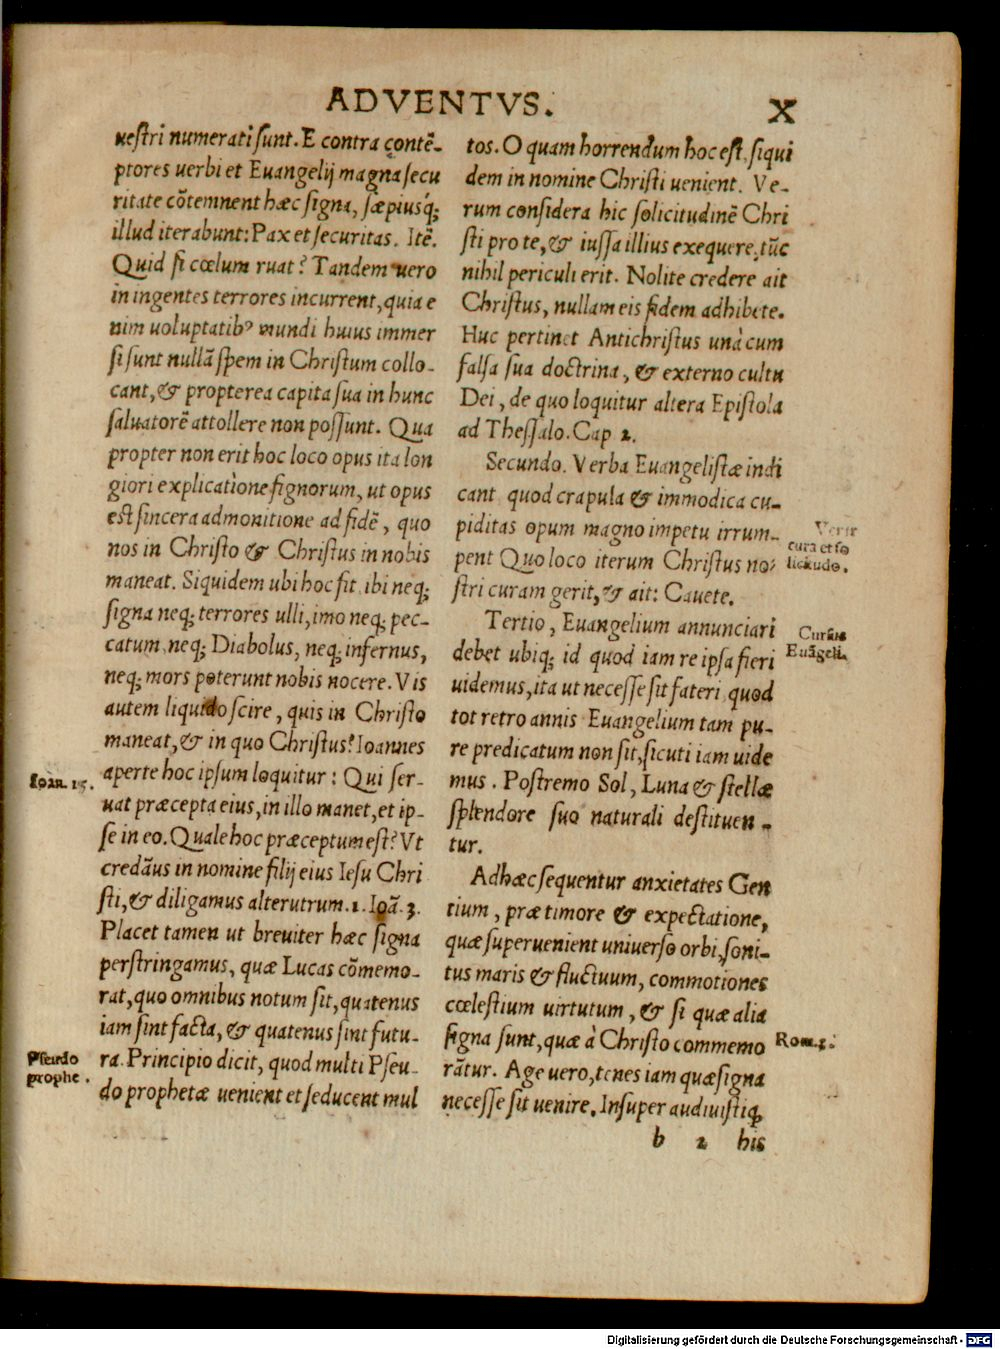 ADVENTVS. X
uestri numerati sunt. E contra contẽ-
ptores uerbi et Euangelij magna secu
ritate cõtemnent hæc signa, sæpiusq́;
illud iterabunt: Pax et securitas. Itẽ.
Quid si cœlum ruat? Tandem uero
in ingentes terrores incurrent, quia e
nim uoluptatibꝰ mundi huius immer
si sunt nullã spem in Christum collo-
cant, & propterea capita sua in hunc
saluatorẽ attollere non possunt. Qua
propter non erit hoc loco opus ita lon
giori explicatione signorum, ut opus
est sincera admonitione ad fidẽ, quo
nos in Christo & Christus in nobis
maneat. Siquidem ubi hoc fit ibi neq;
signa neq; terrores ulli, imo neq; pec-
catum neq; Diabolus, neq; infernus,
neq; mors poterunt nobis nocere. Vis
autem liquido scire, quis in Christo
maneat, & in quo Christus? Ioannes
aperte hoc ipsum loquitur: Qui ser-
uat præcepta eius, in illo manet, et ip-
se in eo. Quale hoc præceptum est? Vt
credãus in nomine filij eius Iesu Chri
sti, & diligamus alterutrum. 1. Ioã. 3.
Placet tamen ut breuiter hæc signa
perstringamus, quæ Lucas cõmemo-
rat, quo omnibus notum sit, quatenus
iam sint facta, & quatenus sint futu-
ra. Principio dicit, quod multi Pseu-
do prophetæ uenient et seducent mul
Ioan. 15.
Pseudo
prophe.
tos. O quam horrendum hoc est, siqui
dem in nomine Christi uenient. Ve-
rum considera hic solicitudinẽ Chri
sti pro te, & iussa illius exequere, tũc
nihil periculi erit. Nolite credere ait
Christus, nullam eis fidem adhibete.
Huc pertinet Antichristus unà cum
falsa sua doctrina, & externo cultu
Dei, de quo loquitur altera Epistola
ad Thessalo. Cap 2.
Secundo. Verba Euangelistæ indi
cant quod crapula & immodica cu-
piditas opum magno impetu irrum-
pent Quo loco iterum Christus no-
stri curam gerit, & ait: Cauete.
Tertio, Euangelium annunciari
debet ubiq; id quod iam re ipsa fieri
uidemus, ita ut necesse sit fateri quod
tot retro annis Euangelium tam pu-
re predicatum non sit, sicuti iam uide
mus. Postremo Sol, Luna & stellæ
splendore suo naturali destituen-
tur.
Adhæc sequentur anxietates Gen
tium, præ timore & expectatione,
quæ superuenient uniuerso orbi, soni-
tus maris & fluctuum, commotiones
cœlestium uirtutum, & si quæ alia
signa sunt, quæ à Christo commemo
rãtur. Age uero, tenes iam quæ signa
necesse sit uenire. Insuper audiuistiq́;
cura et so
licitudo.
Cursus
Euãgeli.
Rom.
b 2 his
Digitalisierung gefördert durch die Deutsche Forschungsgemeinschaft - DFG